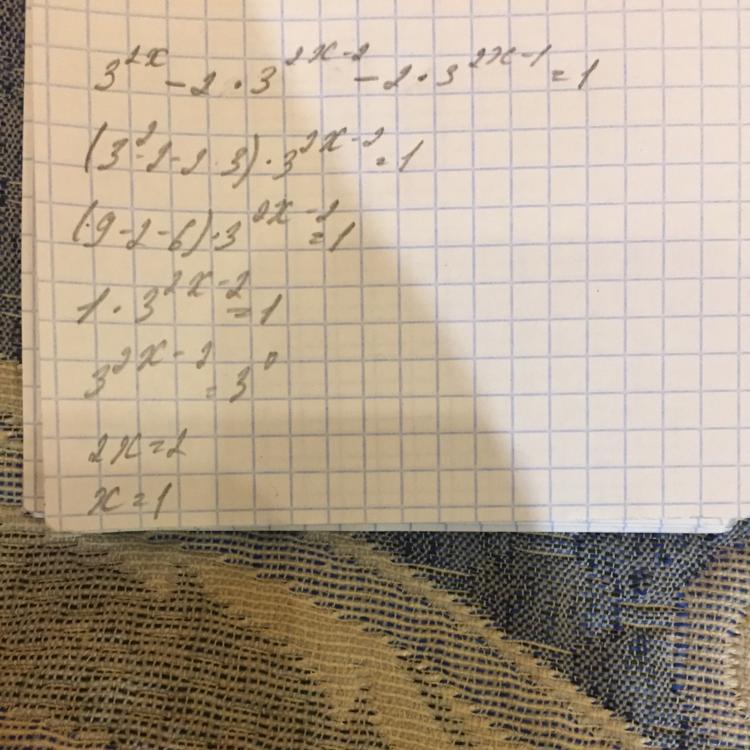 3^{2x} - 2 · 3^{2x-2} - 2 · 3^{2x-1} = 1
(3^2 - 2 - 2 · 3) · 3^{2x-2} = 1
(9 - 2 - 6) · 3^{2x-2} = 1
1 · 3^{2x-2} = 1
3^{2x-2} = 3^0
2x = 2
x = 1